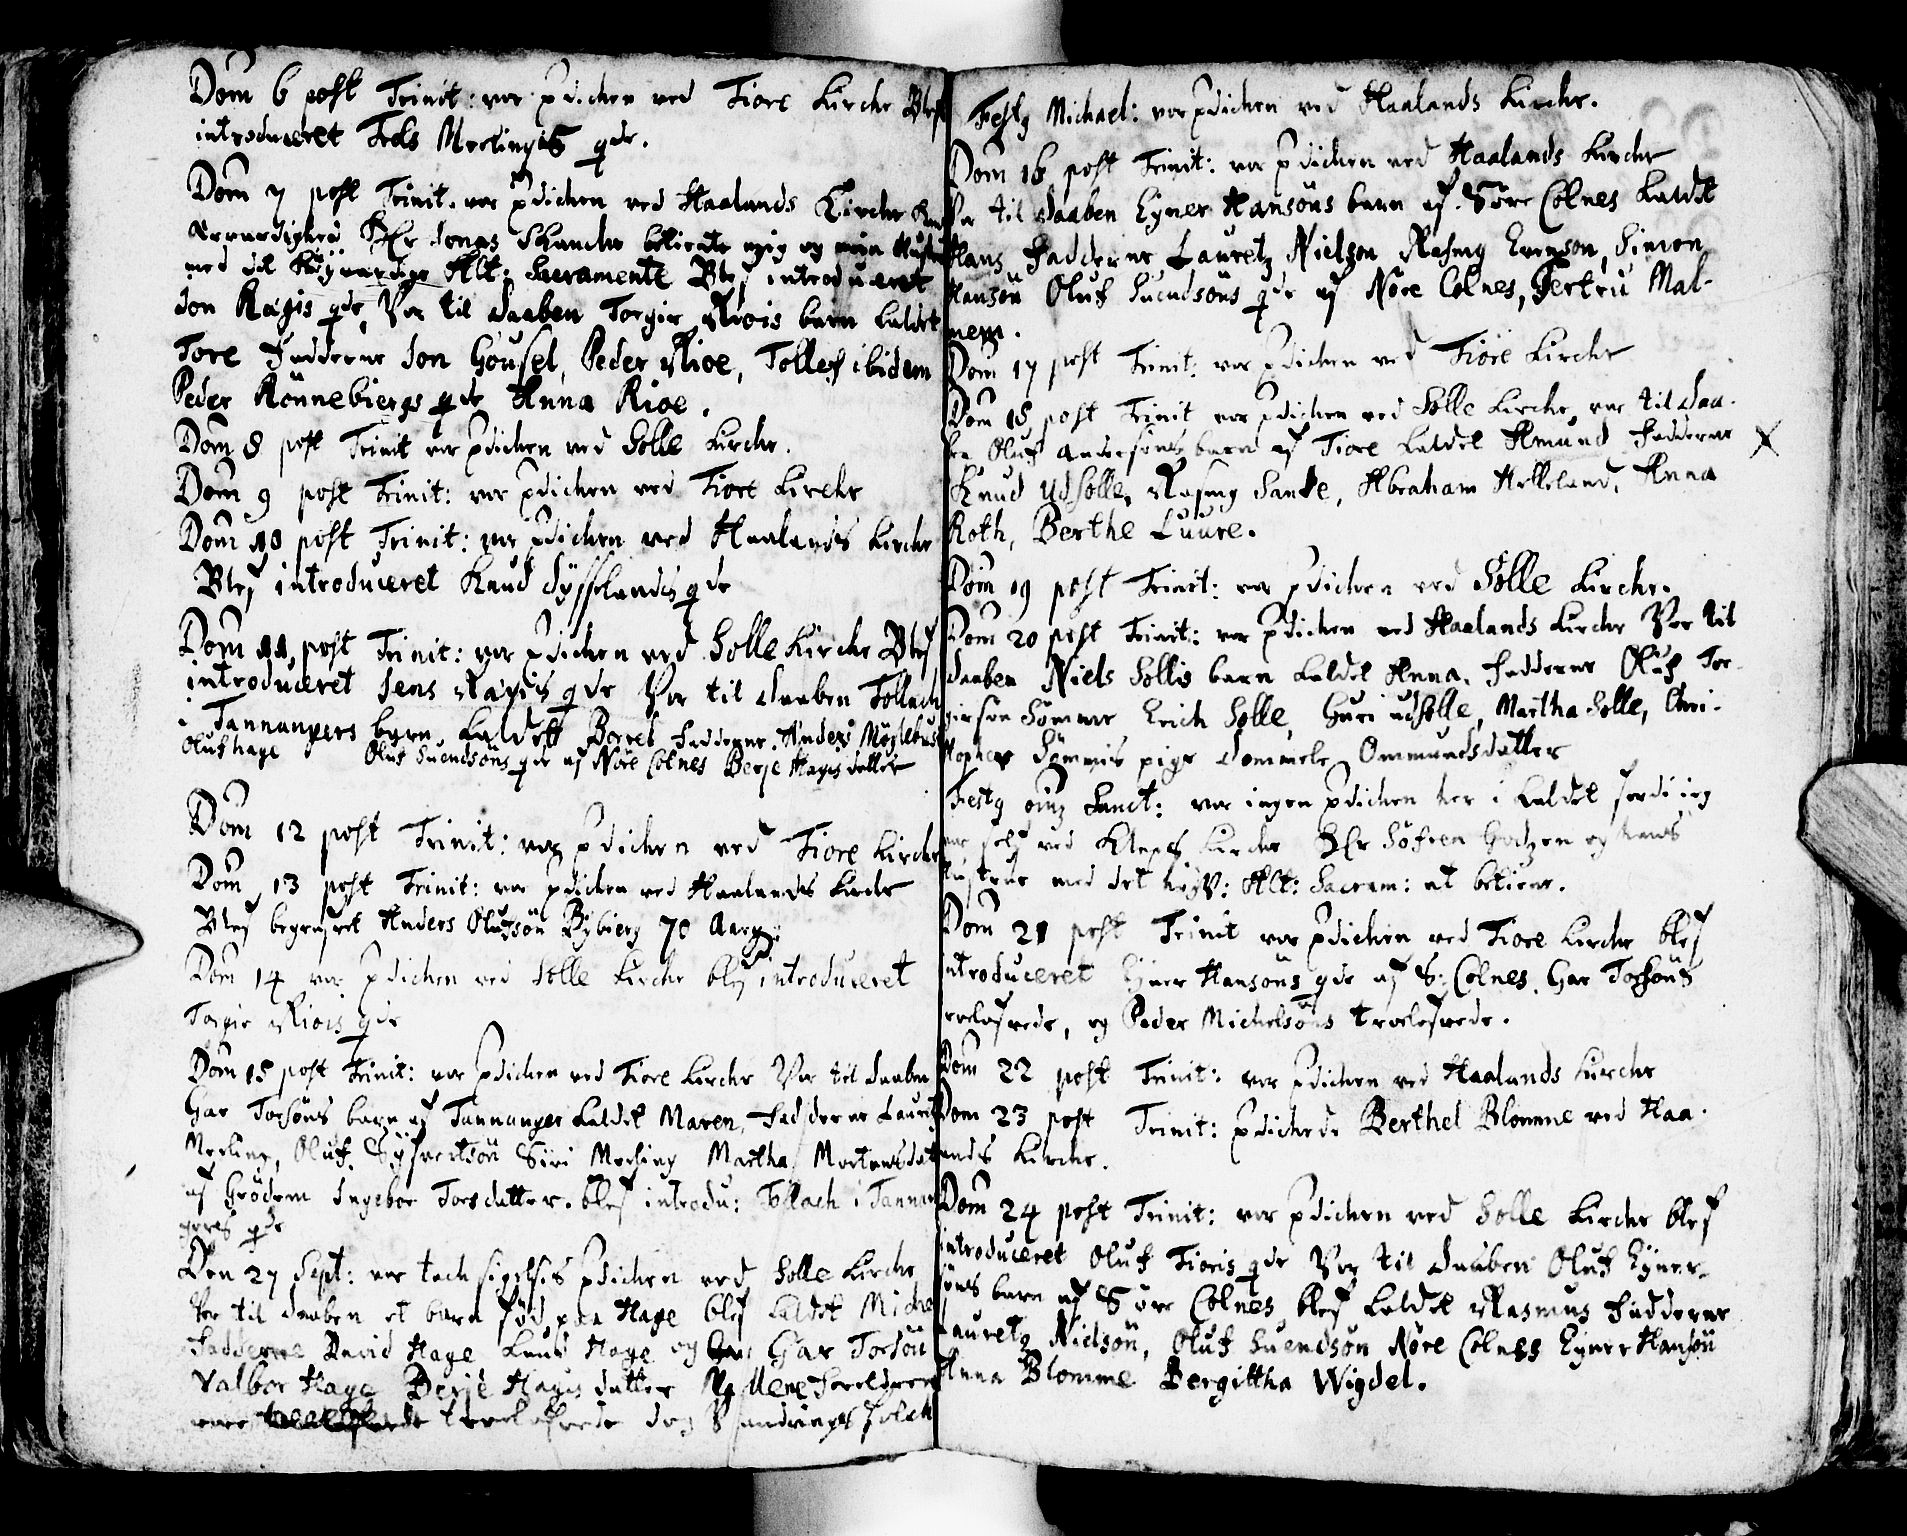 Dom 6 post Trinit: var pdichen ved Tiore Kirche Blef
introduceret Trels Merlingis qde.
Dom 7 post Trinit. var pdichen ved Haalands Kirche
Hr Jonas Skanche betiente mig og min
med det Høyværdige Alt: Sacramente Blef introduceret
Jon Ragis qde, Var til daaben Torgir Riois barn kaldet
Tore Fadderne Jon Gousel, Peder Rioe, Tollef ibidem
Peder Rönnebiergs qde Anna Rioe.
Dom 8 post Trinit var pdichen ved Solle Kirche.
Dom 9 post Trinit: var pdichen ved Tiore Kirche
Dom 10 post Trinit: var pdichen ved Haalands Kirche
Blef introduceret Knud Sysslands qde
Dom 11 post Trinit: var pdichen ved Solle Kirche Blef
introduceret Jens Ragis qde Var til daaben Tollach
i Tannangers barn kaldet Borel Fadderne Anders Myglebust
Oluf Hage Oluf Suendsöns qde af Nöre Colnes Berje Hagis datter
Dom 12 post Trinit: var pdichen ved Tiore Kirche
Dom 13 post Trinit: var pdichen ved Haalands Kirche
Blef begrafvet Anders Olufsön Bybierg 70 Aar
Dom 14 var pdichen ved Solle Kirche blef introduceret
Torgir Riois qde
Dom 15 post Trinit: var pdichen ved Tiore Kirche Var til daaben
Gar Torsöns barn af Tannanger kaldet Maren, Fadderne Lauritz
Merling, Oluf Syfvertsön Siri Merling Martha Mortensdat
af Grödem Ingebor Torsdatter. blef introdu: Tollach i Tannan
gers qde
Den 27 Sept: var tachsigelses pdichen ved Solle Kirche
Var til daaben et barn fød paa Hage blef kaldet Miche
Fadderne David Hage Knud Hage og Gar Torsön
Valbor Hage Berje Hagis datter Foreldrene
vare trolofvede dog folch
Festg Michael: var pdichen ved Haalands Kirche.
Dom 16 post Trinit: var pdichen ved Haalands Kirche
Var til daaben Eyner Hansöns barn af Söre Colnes kaldet
Hans Fadderne Lauretz Nielson Rasmg Evenson, Simon
Hansön Oluf Suendsöns qde af Nöre Colnes, Gertru Mal-
nem.
Dom 17 post Trinit: var pdichen ved Tiore Kirche
Dom 18 post Trinit var pdichen ved Solle Kirche, var til daa-
ben Oluf Andersöns barn af Tiore kaldet Amund Fadderne
Knud Ydsolle, Rasmg Sande, Abraham Helleland, Anna
Roth, Berthe Luure.
Dom 19 post Trinit: var pdichen ved Solle Kirche.
Dom 20 post Trinit: var pdichen ved Haalands Kirche Var til
daaben Niels Sollis barn kaldet Anna. Fadderne Oluf Tor-
girson Sömme Erich Solle, Guri udsolle, Martha Solle, Chri-
stopher Sömmis pige Ommundsdatter
Festg oing Sanct: var ingen pdichen her i kaldet fordi ieg
var self ved Kleps Kirche Hr Söfren Godtzen og hans
hustrue med det høyV: Alt: Sacram: at betiene.
Dom 21 post Trinit var pdichen ved Tiore Kirche blef
introduceret Eyner Hansöns qde af S: Colnes. Gar Torsöns
trolofvede, og Peder Michelsöns trolofvede.
Dom 22 post Trinit: var pdichen ved Haalands Kirche
Dom 23 post Trinit: pdichede Berthel Blomme ved Haa-
lands Kirche.
Dom 24 post Trinit: var pdichen ved Solle Kirche blef
introduceret Oluf Tioris qde Var til daaben Oluf Eyner-
söns barn af Söre Colnes blef kaldet Rasmus Fadderne
Lauretz Nielsön, Oluf Suendsön Nöre Colness Eyner Hansön
Anna Blomme Bergittha Wigdel.